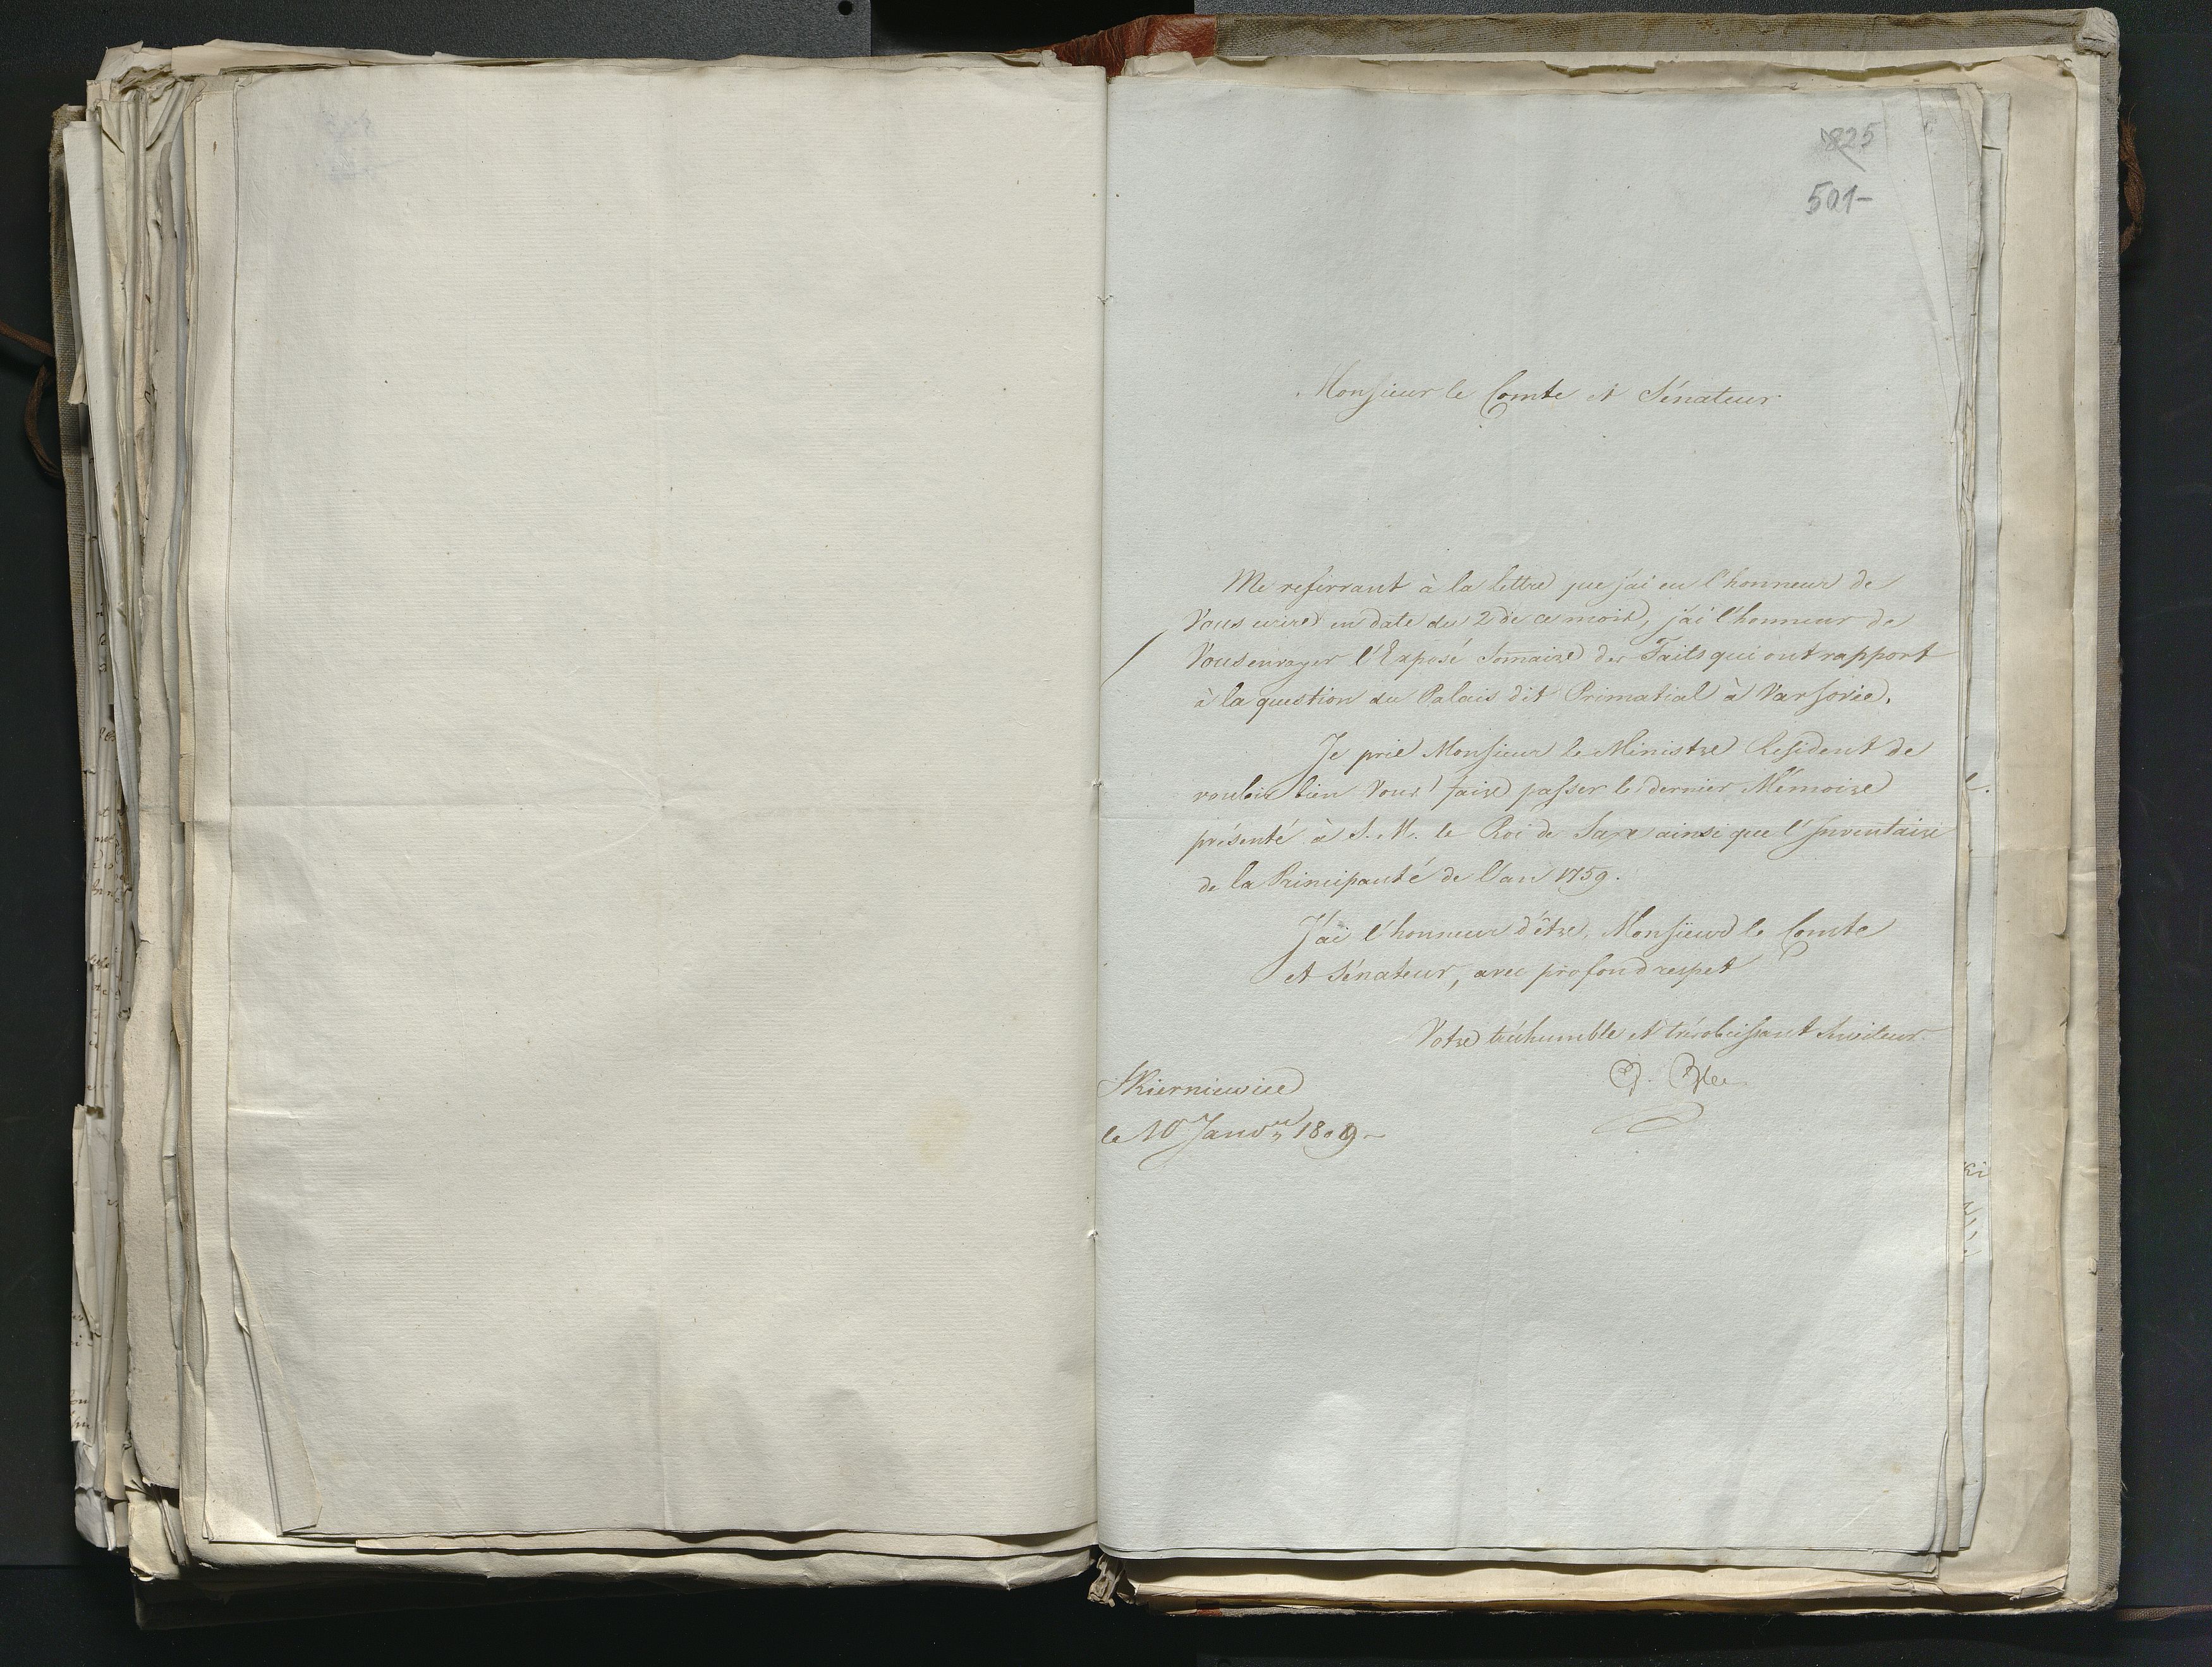 825
501-
Monsieur le Comte et Sénateur
Me referrant à la lettre que j'ai eu l'honneur de
Vous ecrire en date du 2 de ce mois, j'ai l'honneur de
Vous envoyer l'Exposé Somaire des Faits qui ont rapport
à la question du Palais dit Primatial à Varsovie.
Je prie Monsieur le Ministre Resident de
vouloir bien Vous faire passer le dernier Mémoire
présenté à S. M. le Roi de Saxe ainsi que l'Inventaire
de la Principauté de l'an 1759.
J'ai l'honneur d'être, Monsieur le Comte
et Sénateur, avec profond respet
Votre trèshumble et trèsobeissant Serviteur
Skierniewice
le 10 Janv. 1809